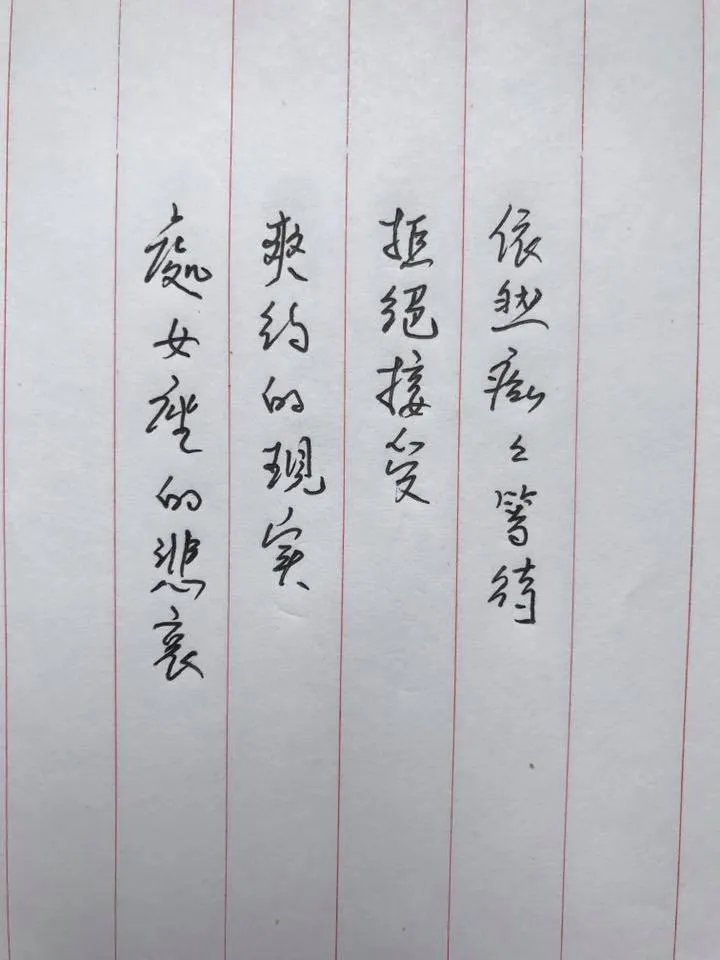 依然痴々等待
拒絕接受
爽约的現实
處女座的悲哀